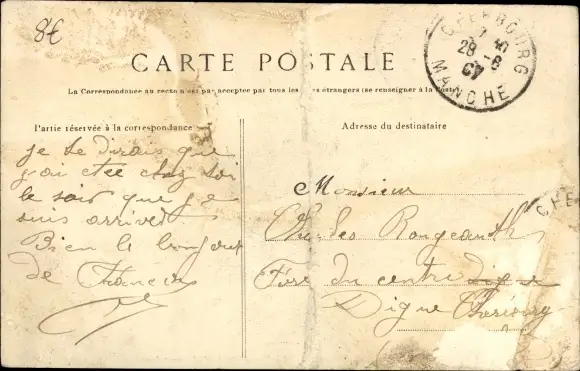 8€
CARTE POSTALE
CHERBOURG
28 -8
MANCHE
La Correspondance au recto n'est pas acceptée par tous les pays étrangers (se renseigner à la poste)
Partie réservée à la correspondance
Adresse du destinataire
je te dirais que
j'ai étée chez toi
le soir que je
suis arrivét
Bien le bonjour
de
Monsieur
Charles
du centre Digue
Digue
CHE